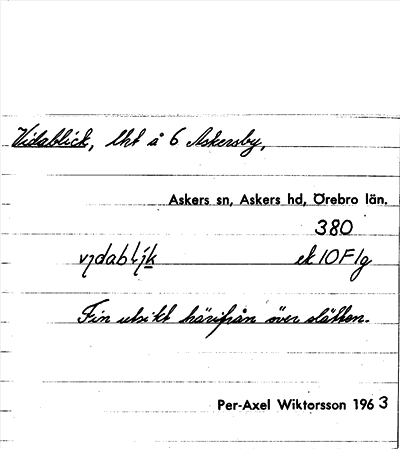 Vidablick, lht å 6 Askersby,
Askers sn, Askers hd, Örebro län.
380
ek 10F1g
Fin utsikt härifrån över slätten.
Per-Axel Wiktorsson 1963